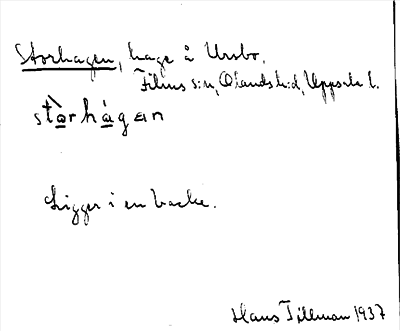 Storhagen, hage å Ursbo.
Films s:n, Olands h:d, Uppsala l.
stòrhágen
Ligger i en backe.
Hans Tillman 1937